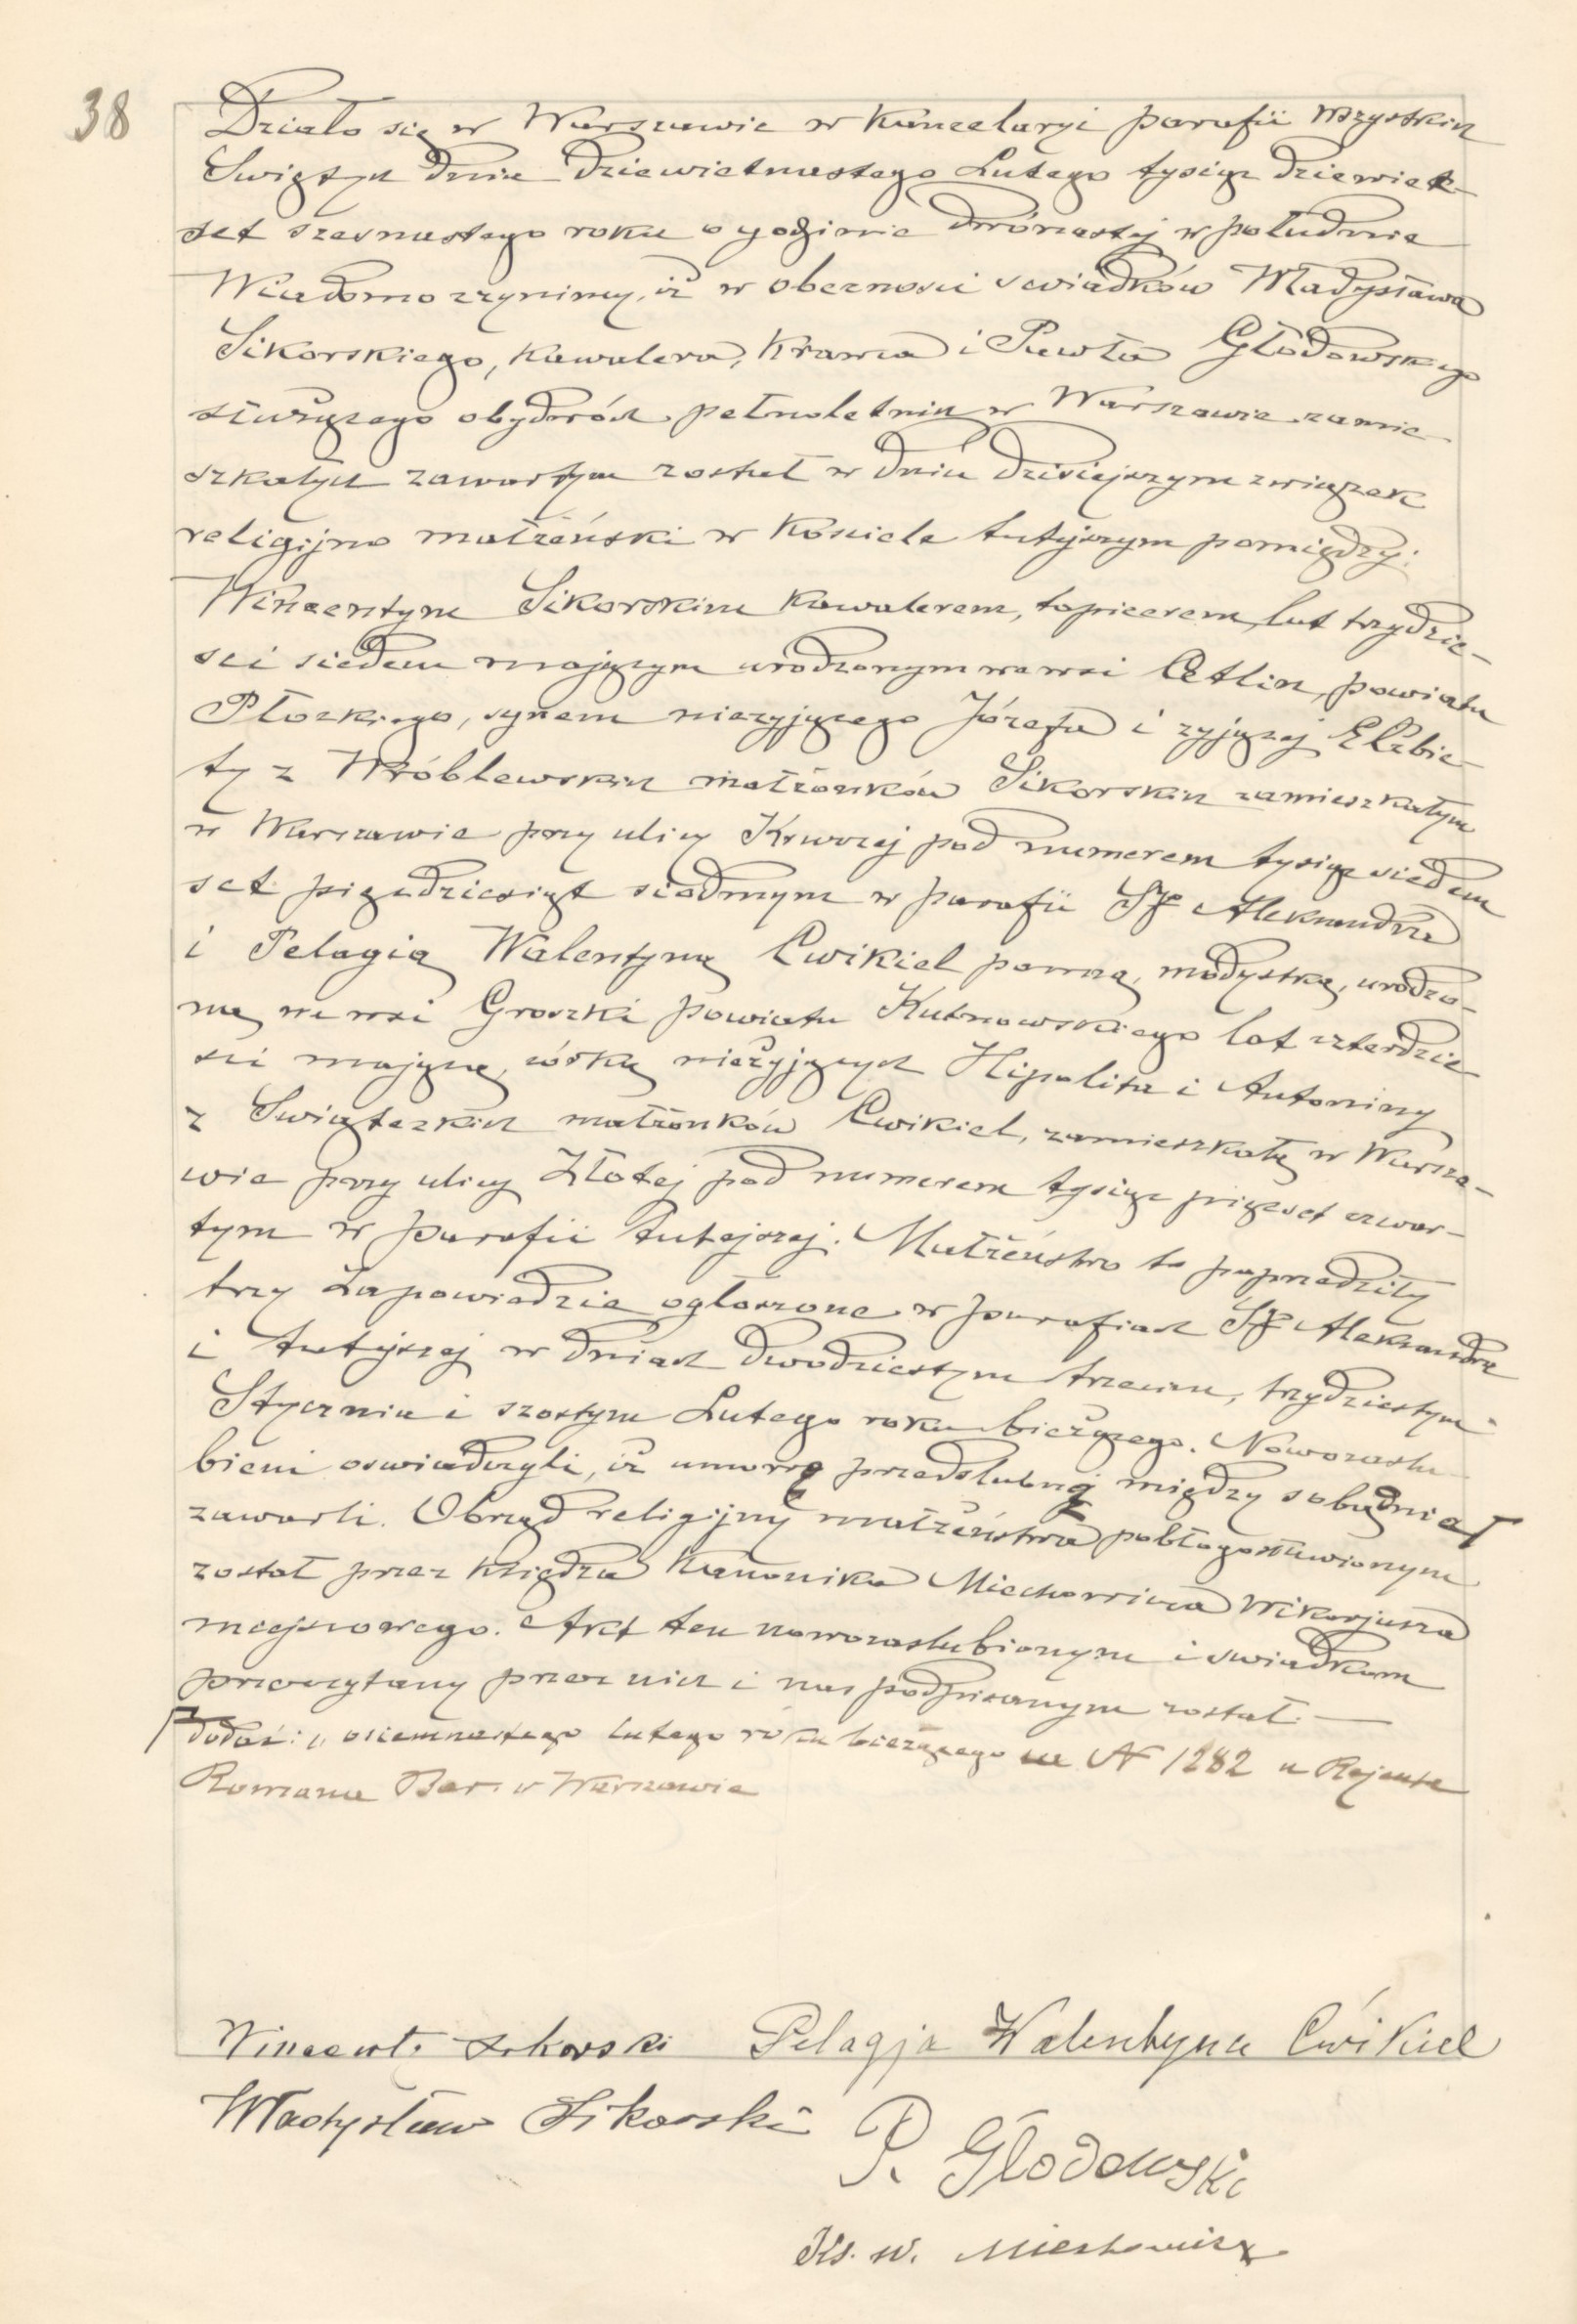 38
Działo się w Warszawie w Kancelaryi parafii Wszystkich
Swiętych dnia dziewietnastego Lutego tysiąc dziewięć-
set szesnastego roku o godzinie dwónastej w południe
Wiadomo czynimy, iż w obecnosci swiadków Władysława
Sikorskiego, Kawalera, Krawca i Pawła Głodowskiego
służącego obydwóch pełnoletnich w Warszawie zamie
szkałych zawartym został w dniu dzisiejszym związek
religijno małżeński w Kosciele tutejszym pomiędzy:
Wincentym Sikorskim Kawalerem, tapicerem, lat trzydzie-
sci siedem mającym urodzonym we wsi Cetlin, powiatu
Płockiego, synem nieżyjącego Józefa i żyjącej Elzbie-
ty z Wróblewskich małżonków Sikorskich zamieszkałym
w Warszawie przy ulicy Kruczej pod numerem tysiąc siedem
set pięćdziesiąt siódmym w parafii Sgo Aleksandra
i Pelagią Walentyną Cwikiel panną, modystką, urodzo-
ną we wsi Groszki powiatu Kutnowskiego lat czterdzie
sci mającą, córką nieżyjących Hipolita i Antoniny
z Swiąteckich małżonków Cwikiel, zamieszkałą w Warsza-
wie przy ulicy Złotej pod numerem tysiąc pięćset czwar-
tym w parafii tutejszej. Małżeństwo to poprzedziły
trzy Zapowiedzie ogłoszone w parafiach Sgo Aleksandra
i tutejszej w dniach dwudziestym trzecim, trzydziestym
Stycznia i szostym Lutego roku bieżącego. Nowozaslu-
bieni oswiadczyli, iż umowę przedslubną między sobą dnia Γ
zawarli. Obrząd religijny małżeństwa pobłogosławionym
został przez księdza Kanonika Miechowicza Wikarjusza
miejscowego. Akt ten nowozaslubionym i swiadkom
przeczytany przez nich i nas podpisanym został. —
Γ dodać: osiemnastego lutego roku bieżącego za N 1282 u Rejenta
Romana Bar. w Warszawie
Wincenti Sikorski Pelagja Walentyna Ćwikiel
Władysław Sikorski P. Głodowski
Ks. W. Miechowicz